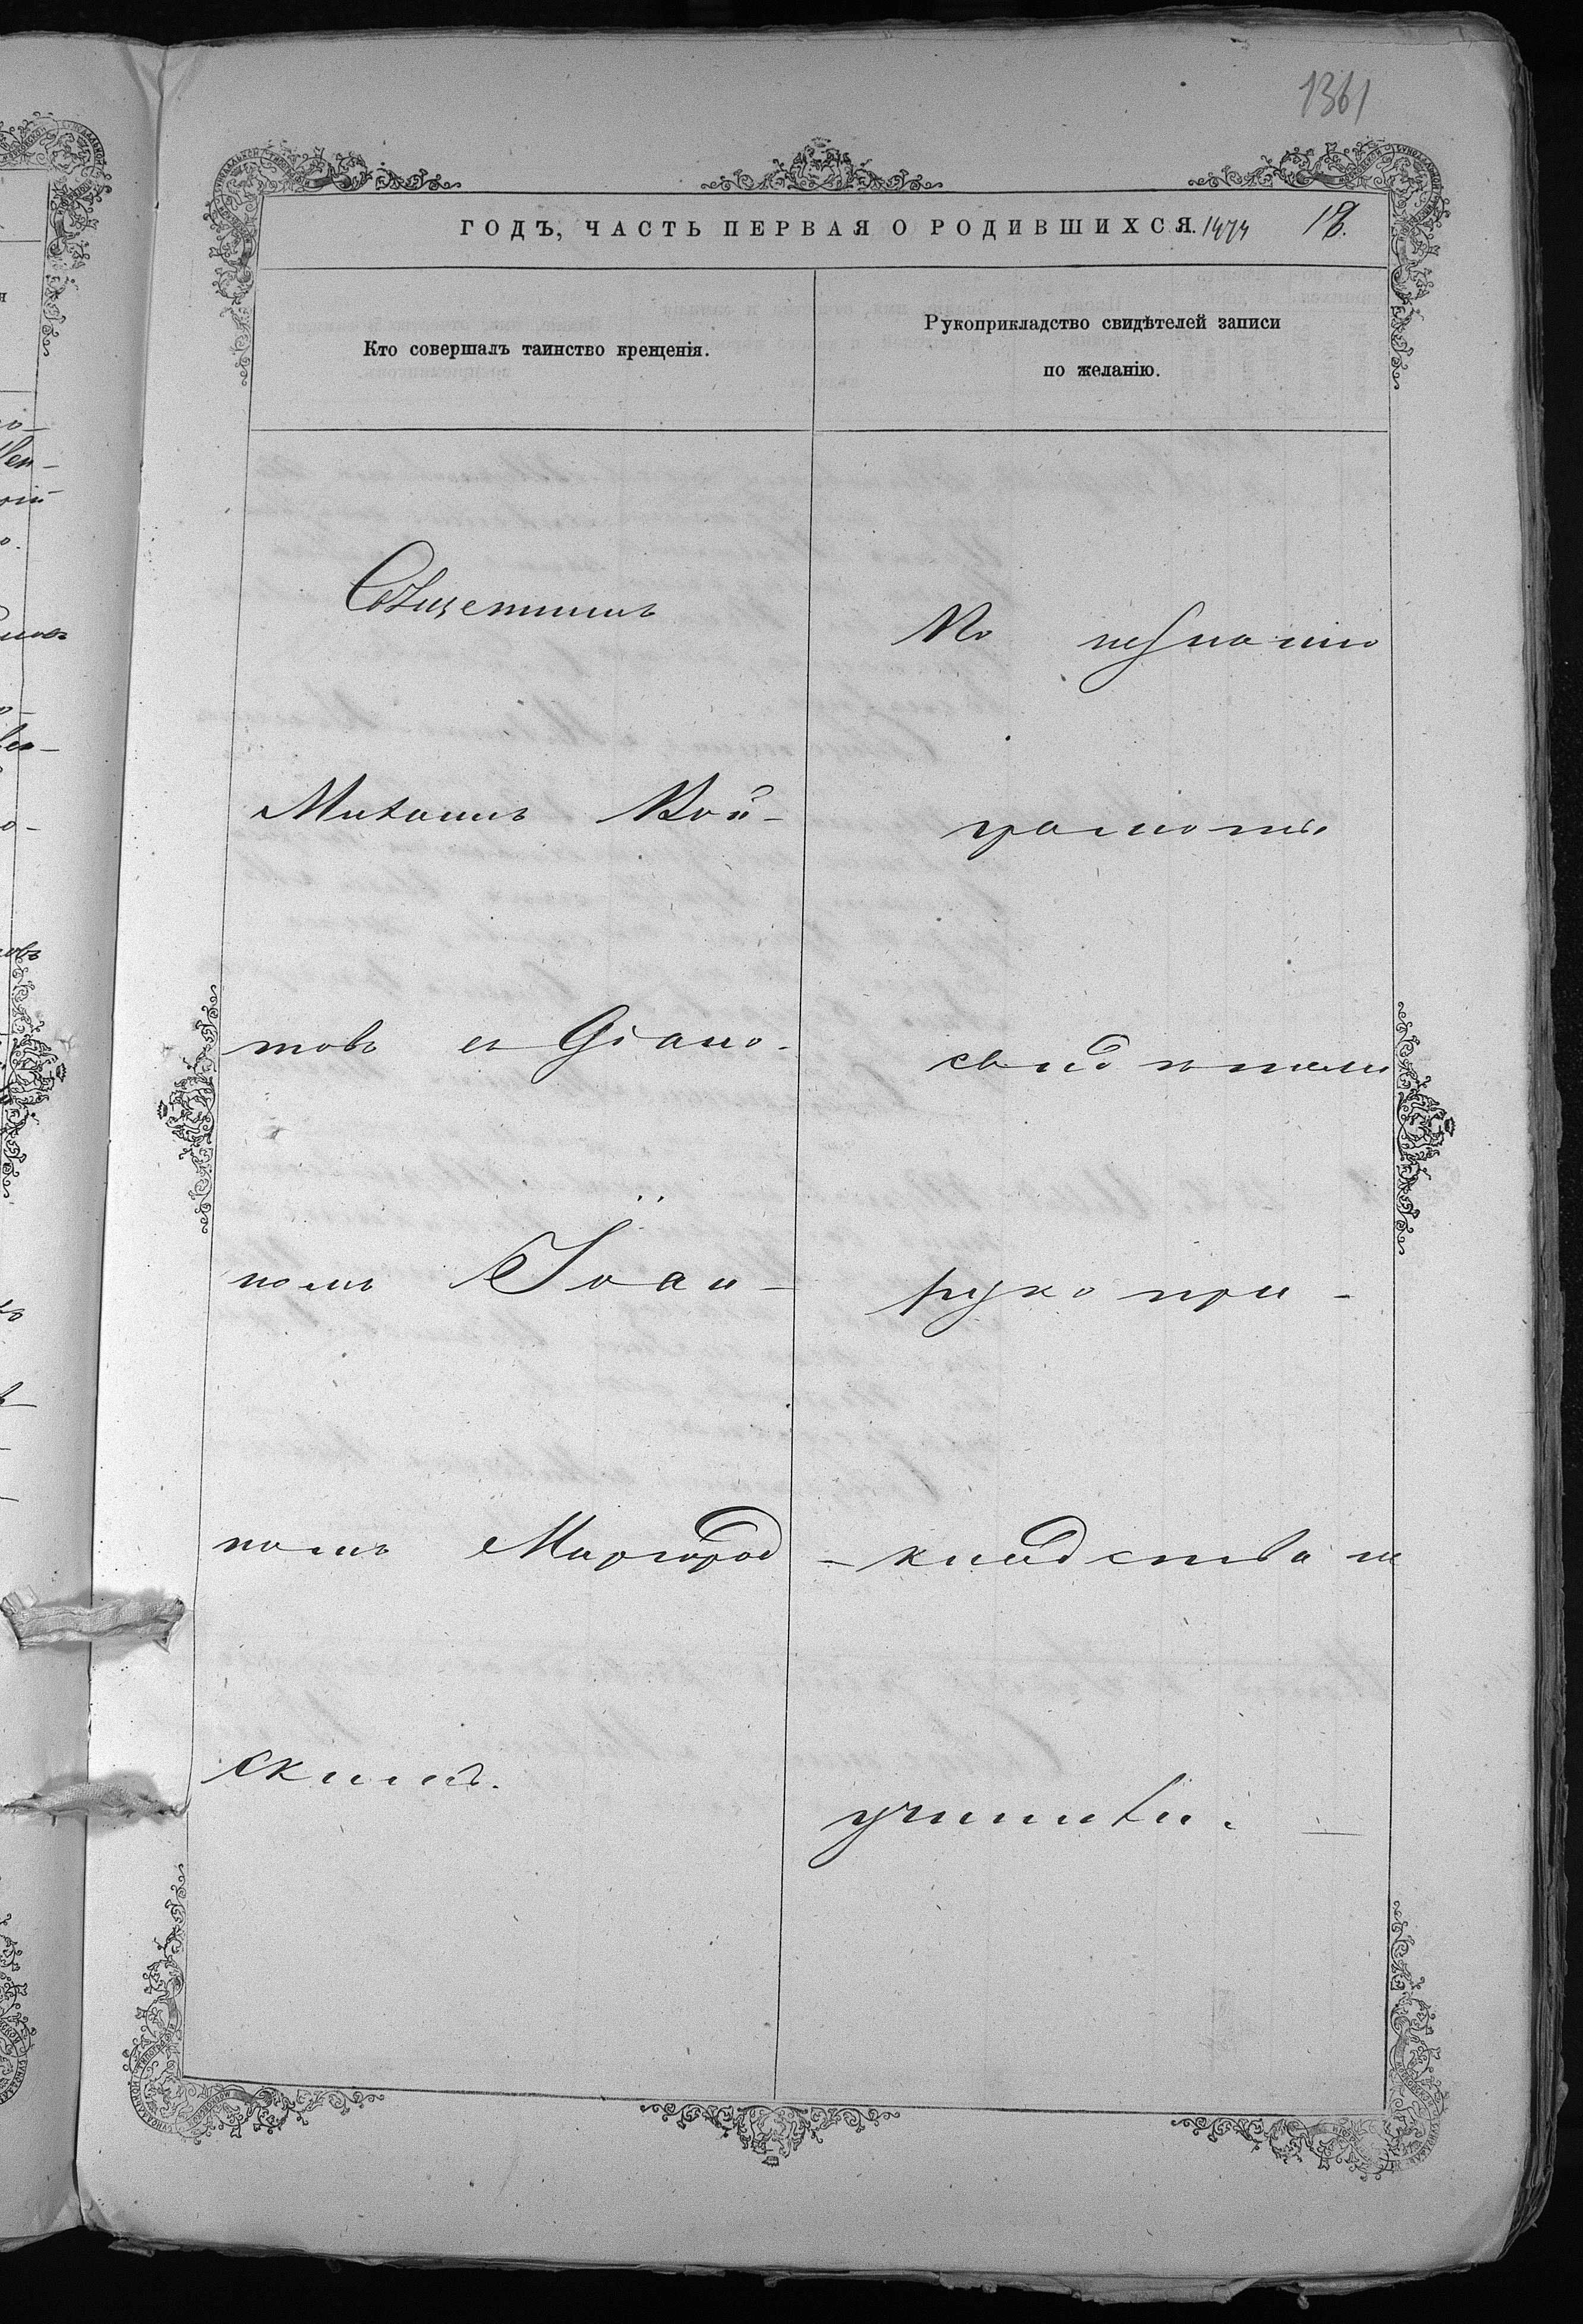 1361
ГОДЪ, ЧАСТЬ ПЕРВАЯ О РОДИВШИХСЯ. 1474 18.
Кто совершалъ таинство крещенія.
Рукоприкладство свидѣтелей записи
по желанію.
Священникъ
Михаилъ Вой-
товъ съ Діако-
номъ Іоан-
номъ Миргород
скимъ.
По незнанію
грамоты
свидѣтели
рукопри-
- кладства не
учинили.